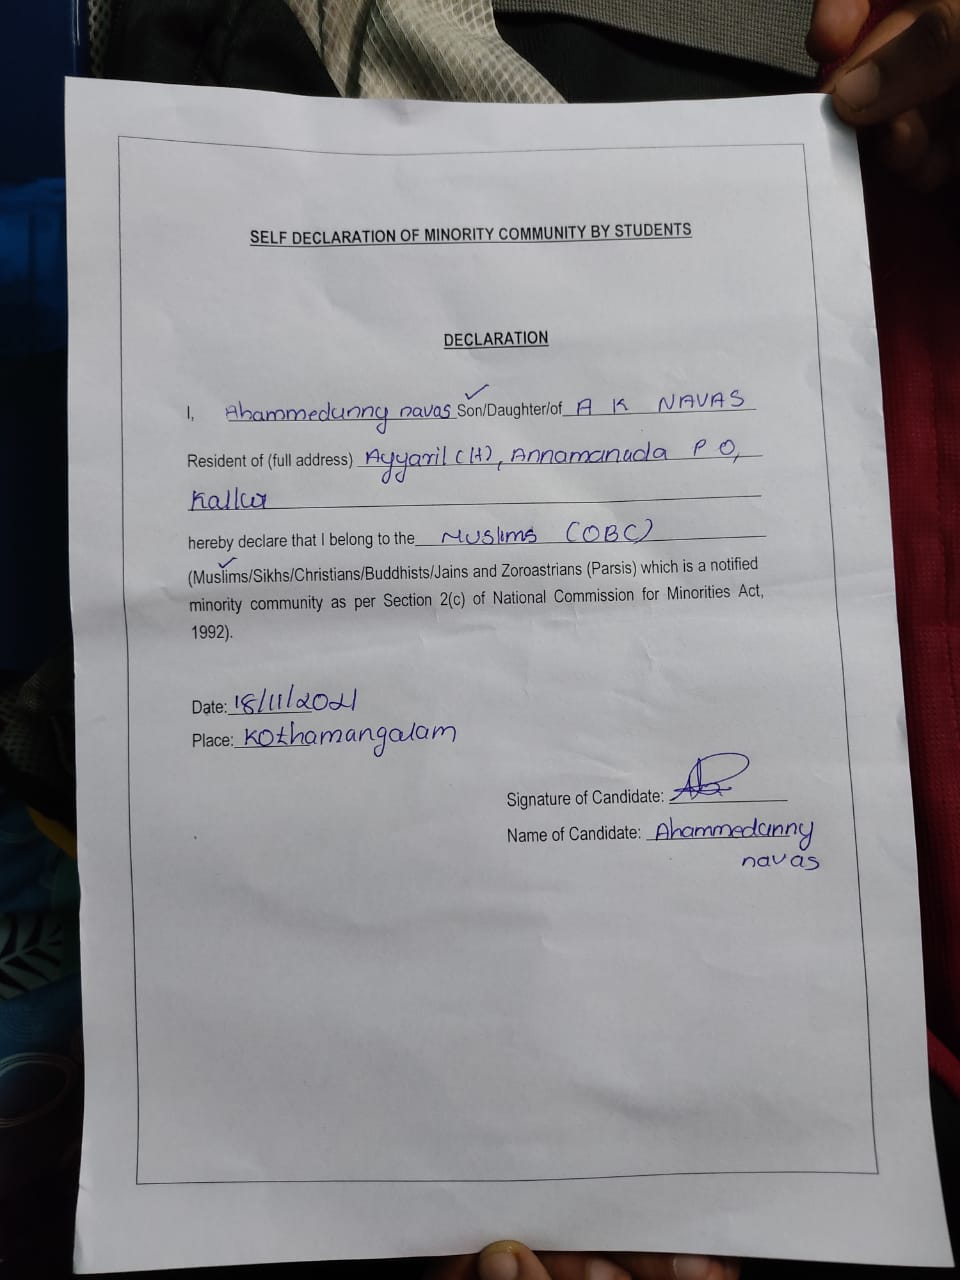 SELF DECLARATION OF MINORITY COMMUNITY BY STUDENTS
DECLARATION
I, Ahammedunny navas Son/Daughter/of A K NAVAS
Resident of (full address) Ayyaril (H), Annamanada P O,
Kallur
hereby declare that I belong to the Muslims (OBC)
(Muslims/Sikhs/Christians/Buddhists/Jains and Zoroastrians (Parsis) which is a notified
minority community as per Section 2(c) of National Commission for Minorities Act,
1992).
Date: 18/11/2021
Place: Kothamangalam
Signature of Candidate:
Name of Candidate: Ahammedunny
navas